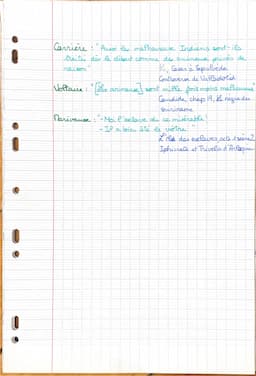 Carrière : "Aussi les malheureux Indiens sont-ils
traités dès le début comme des animaux privés de
raison"
Las Casas à Sepulveda
Controverse de Valladolid
Voltaire : "[les animaux] sont mille fois moins malheureux"
Candide, chap 19, le nègre de
Suriname
Marivaux : "- Moi l'esclave de ce misérable !
- Il a bien été le vôtre"
L'île des esclaves, acte I scène 2
Iphicrate et Trivelin d'Arlequin